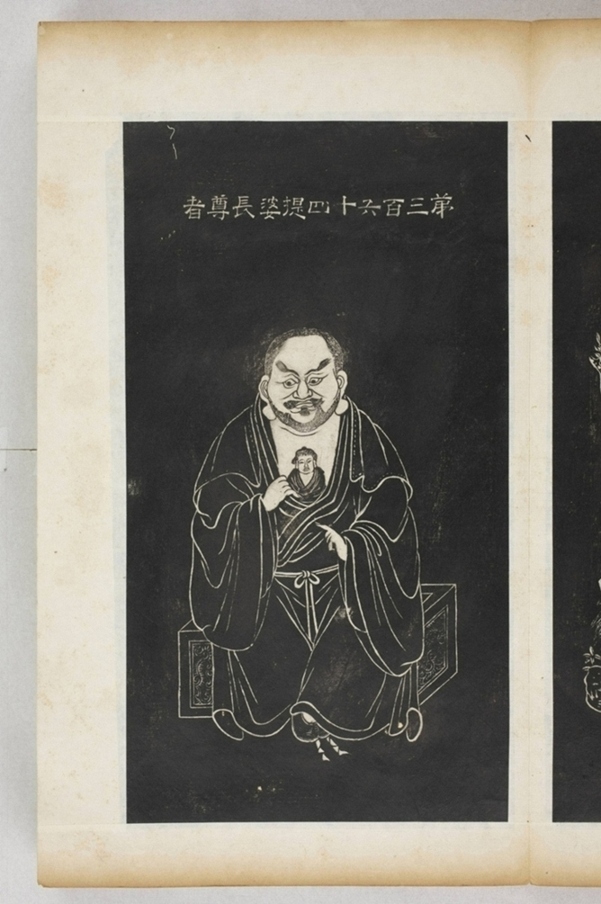 弟三百六十四提婆長尊者